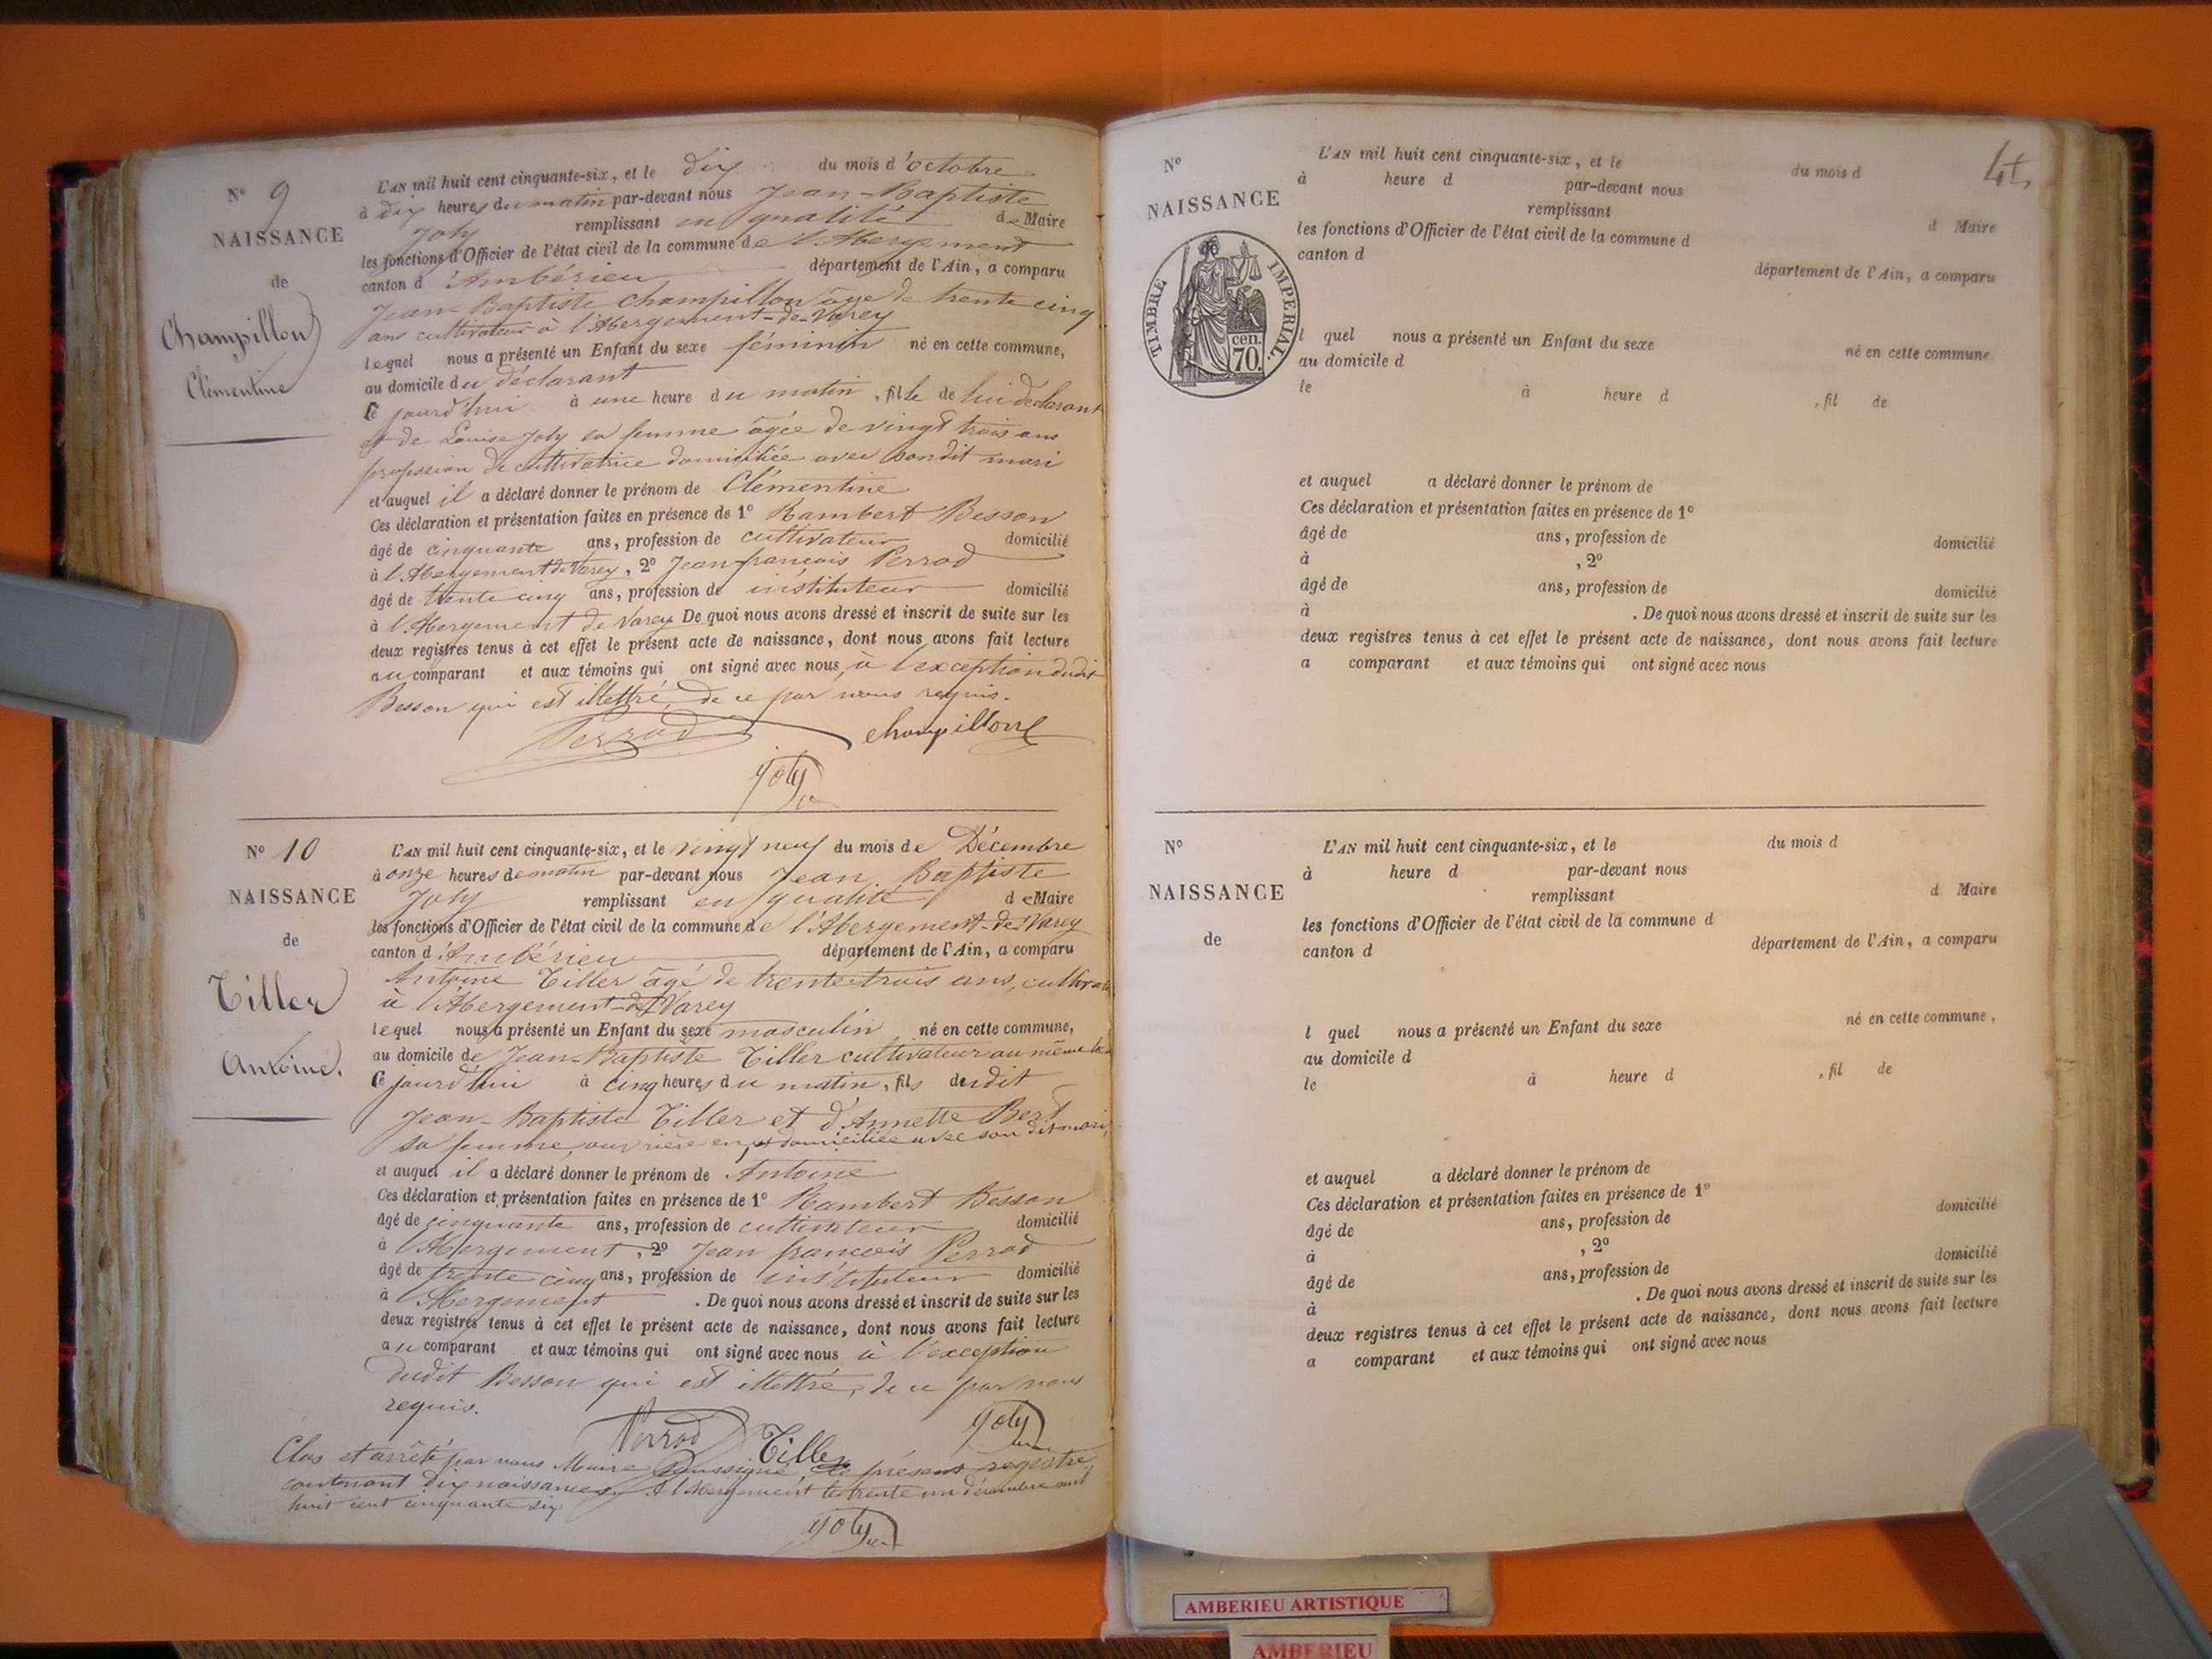 N° 9
NAISSANCE
de
Champillon
Clémentine
L'AN mil huit cent cinquante-six, et le dix du mois d'octobre
à dix heures du matin par-devant nous Jean-Baptiste
Joly remplissant en qualité de Maire
les fonctions d'Officier de l'état civil de la commune de l'Abergement
canton d'Ambérieu département de l'Ain, a comparu
Jean-Baptiste Champillon âgé de trente cinq
ans cultivateur à l'Abergement-de-Varey
lequel nous a présenté un Enfant du sexe féminin né en cette commune,
au domicile du déclarant
Ce jourd'hui à une heure du matin, fille de lui déclarant
et de Louise Joly sa femme âgée de vingt trois ans
profession de cultivatrice domiciliée avec sondit mari
et auquel il a déclaré donner le prénom de Clémentine
Ces déclaration et présentation faites en présence de 1° Rambert Besson
âgé de cinquante ans, profession de cultivateur domicilié
à l'Abergement de Varey, 2° Jean françois Perrod
âgé de trente cinq ans, profession de instituteur domicilié
à l'Abergement de Varey De quoi nous avons dressé et inscrit de suite sur les
deux registres tenus à cet effet le présent acte de naissance, dont nous avons fait lecture
au comparant et aux témoins qui ont signé avec nous, à l'exception dudit
Besson qui est illettré, de ce par nous requis.
Perrod champillon
Joly
N° 10
NAISSANCE
de
Tiller
Antoine.
L'AN mil huit cent cinquante-six, et le vingt neuf du mois de Décembre
à onze heures de matin par-devant nous Jean Baptiste
Joly remplissant en qualité de Maire
les fonctions d'Officier de l'état civil de la commune de l'Abergement-de-Varey
canton d'Ambérieu département de l'Ain, a comparu
Antoine Tiller âgé de trente-trois ans,
à l'Abergement-de-Varey
lequel nous a présenté un Enfant du sexe masculin né en cette commune,
au domicile de Jean-Baptiste Tiller cultivateur au même
Ce jourd'hui à cinq heures du matin, fils dudit
Jean-Baptiste Tiller et d'Annette Bert
sa femme, ouvrière domiciliée avec son dit mari,
et auquel il a déclaré donner le prénom de Antoine
Ces déclaration et présentation faites en présence de 1° Rambert Besson
âgé de cinquante ans, profession de cultivateur domicilié
à l'Abergement, 2° Jean françois Perrod
âgé de trente cinq ans, profession de instituteur domicilié
à l'Abergement. De quoi nous avons dressé et inscrit de suite sur les
deux registres tenus à cet effet le présent acte de naissance, dont nous avons fait lecture
au comparant et aux témoins qui ont signé avec nous à l'exception
dudit Besson qui est illettré, de ce par nous
requis.
Perrod Tiller Joly
Clos et arrêté par nous Maire Soussigné, le présent registre
contenant dix naissances. A l'Abergement le trente un décembre mil
huit cent cinquante six
Joly
4
N°
NAISSANCE
TIMBRE IMPERIAL.
cen.
70.
L'AN mil huit cent cinquante-six, et le du mois d
à heure d par-devant nous
remplissant d Maire
les fonctions d'Officier de l'état civil de la commune d
canton d département de l'Ain, a comparu
l quel nous a présenté un Enfant du sexe né en cette commune
au domicile d
le à heure d , fil de
et auquel a déclaré donner le prénom de
Ces déclaration et présentation faites en présence de 1°
âgé de ans, profession de domicilié
à , 2°
âgé de ans, profession de domicilié
à . De quoi nous avons dressé et inscrit de suite sur les
deux registres tenus à cet effet le présent acte de naissance, dont nous avons fait lecture
a comparant et aux témoins qui ont signé avec nous
N°
NAISSANCE
de
L'AN mil huit cent cinquante-six, et le du mois d
à heure d par-devant nous
remplissant d Maire
les fonctions d'Officier de l'état civil de la commune d
canton d département de l'Ain, a comparu
l quel nous a présenté un Enfant du sexe né en cette commune,
au domicile d
le à heure d , fil de
et auquel a déclaré donner le prénom de
Ces déclaration et présentation faites en présence de 1°
âgé de ans, profession de domicilié
à , 2°
âgé de ans, profession de domicilié
à . De quoi nous avons dressé et inscrit de suite sur les
deux registres tenus à cet effet le présent acte de naissance, dont nous avons fait lecture
a comparant et aux témoins qui ont signé avec nous
AMBERIEU ARTISTIQUE
AMBERIEU